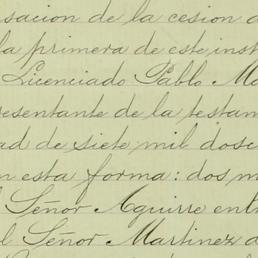 sacion de la cesion
la primera de este inst
Licenciado Pablo
resentante de la testam
ad de siete mil dosc
n esta forma: dos m
l Señor Aguirre ent
l Señor Martinez